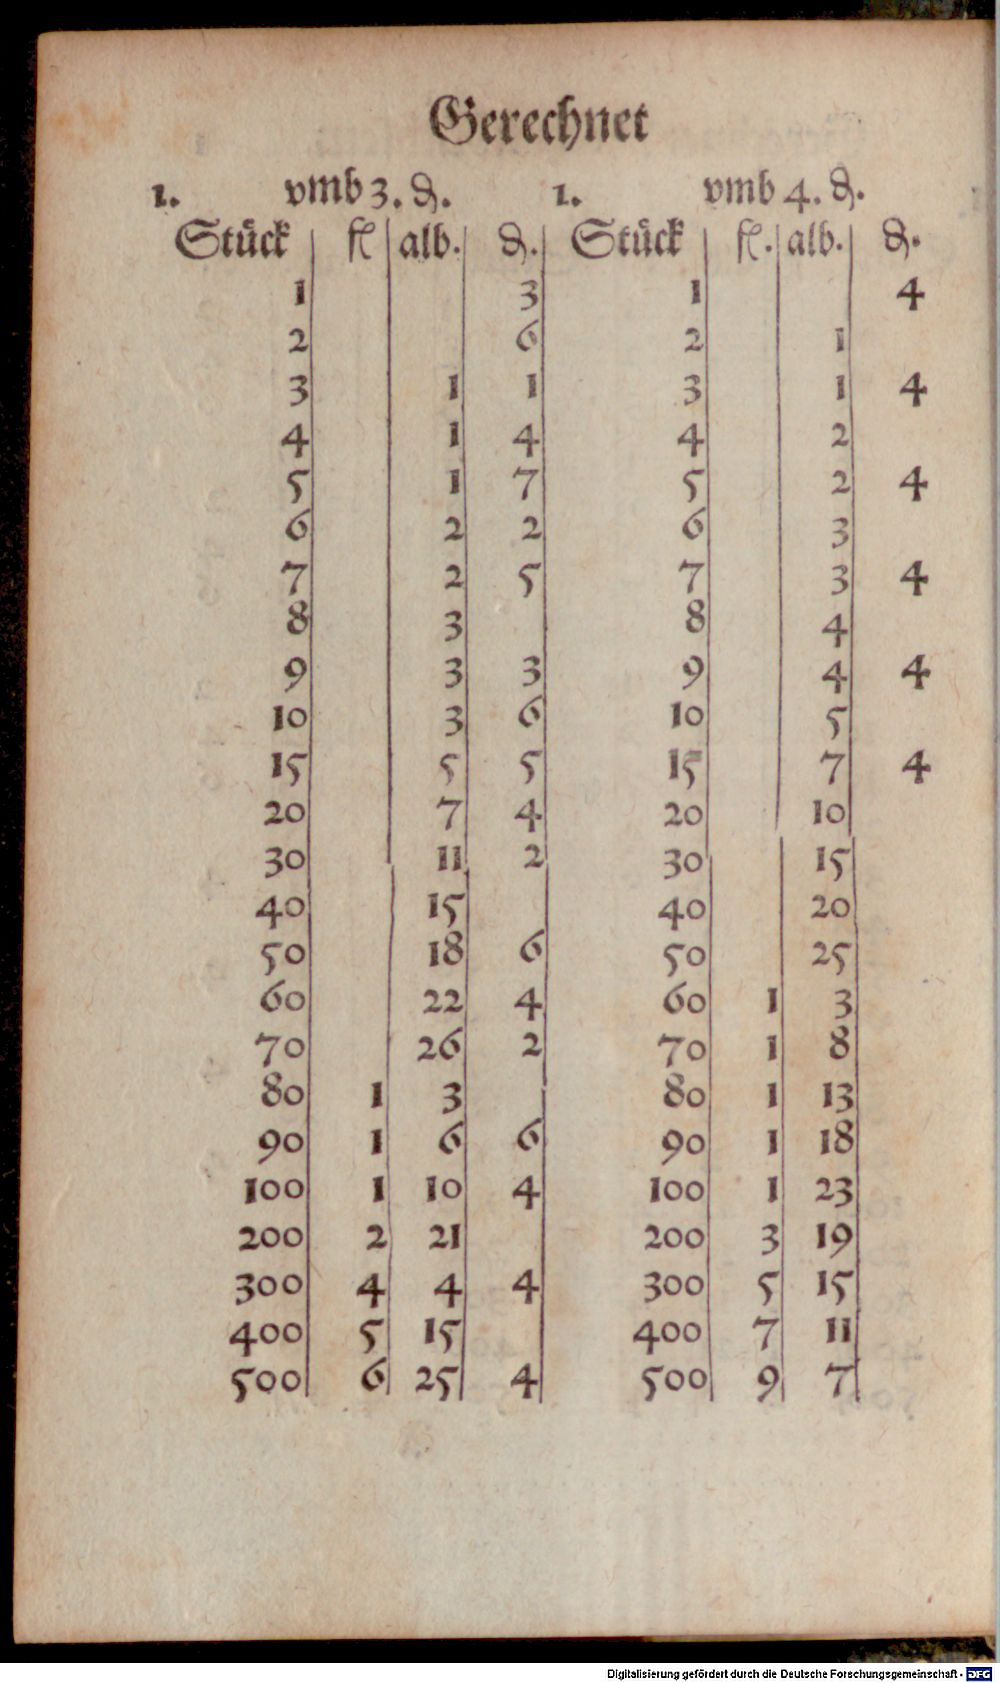 Gerechnet
1. vmb 3. ₰. 1. vmb 4. ₰.
Stück fl alb. ₰. Stück fl. alb. ₰.
1 3 1 4
2 6 2 1
3 1 1 3 1 4
4 1 4 4 2
5 1 7 5 2 4
6 2 2 6 3
7 2 5 7 3 4
8 3 8 4
9 3 3 9 4 4
10 3 6 10 5
15 5 5 15 7 4
20 7 4 20 10
30 11 2 30 15
40 15 40 20
50 18 6 50 25
60 22 4 60 1 3
70 26 2 70 1 8
80 1 3 80 1 13
90 1 6 6 90 1 18
100 1 10 4 100 1 23
200 2 21 200 3 19
300 4 4 4 300 5 15
400 5 15 400 7 11
500 6 25 4 500 9 7
Digitalisierung gefördert durch die Deutsche Forschungsgemeinschaft - DFG